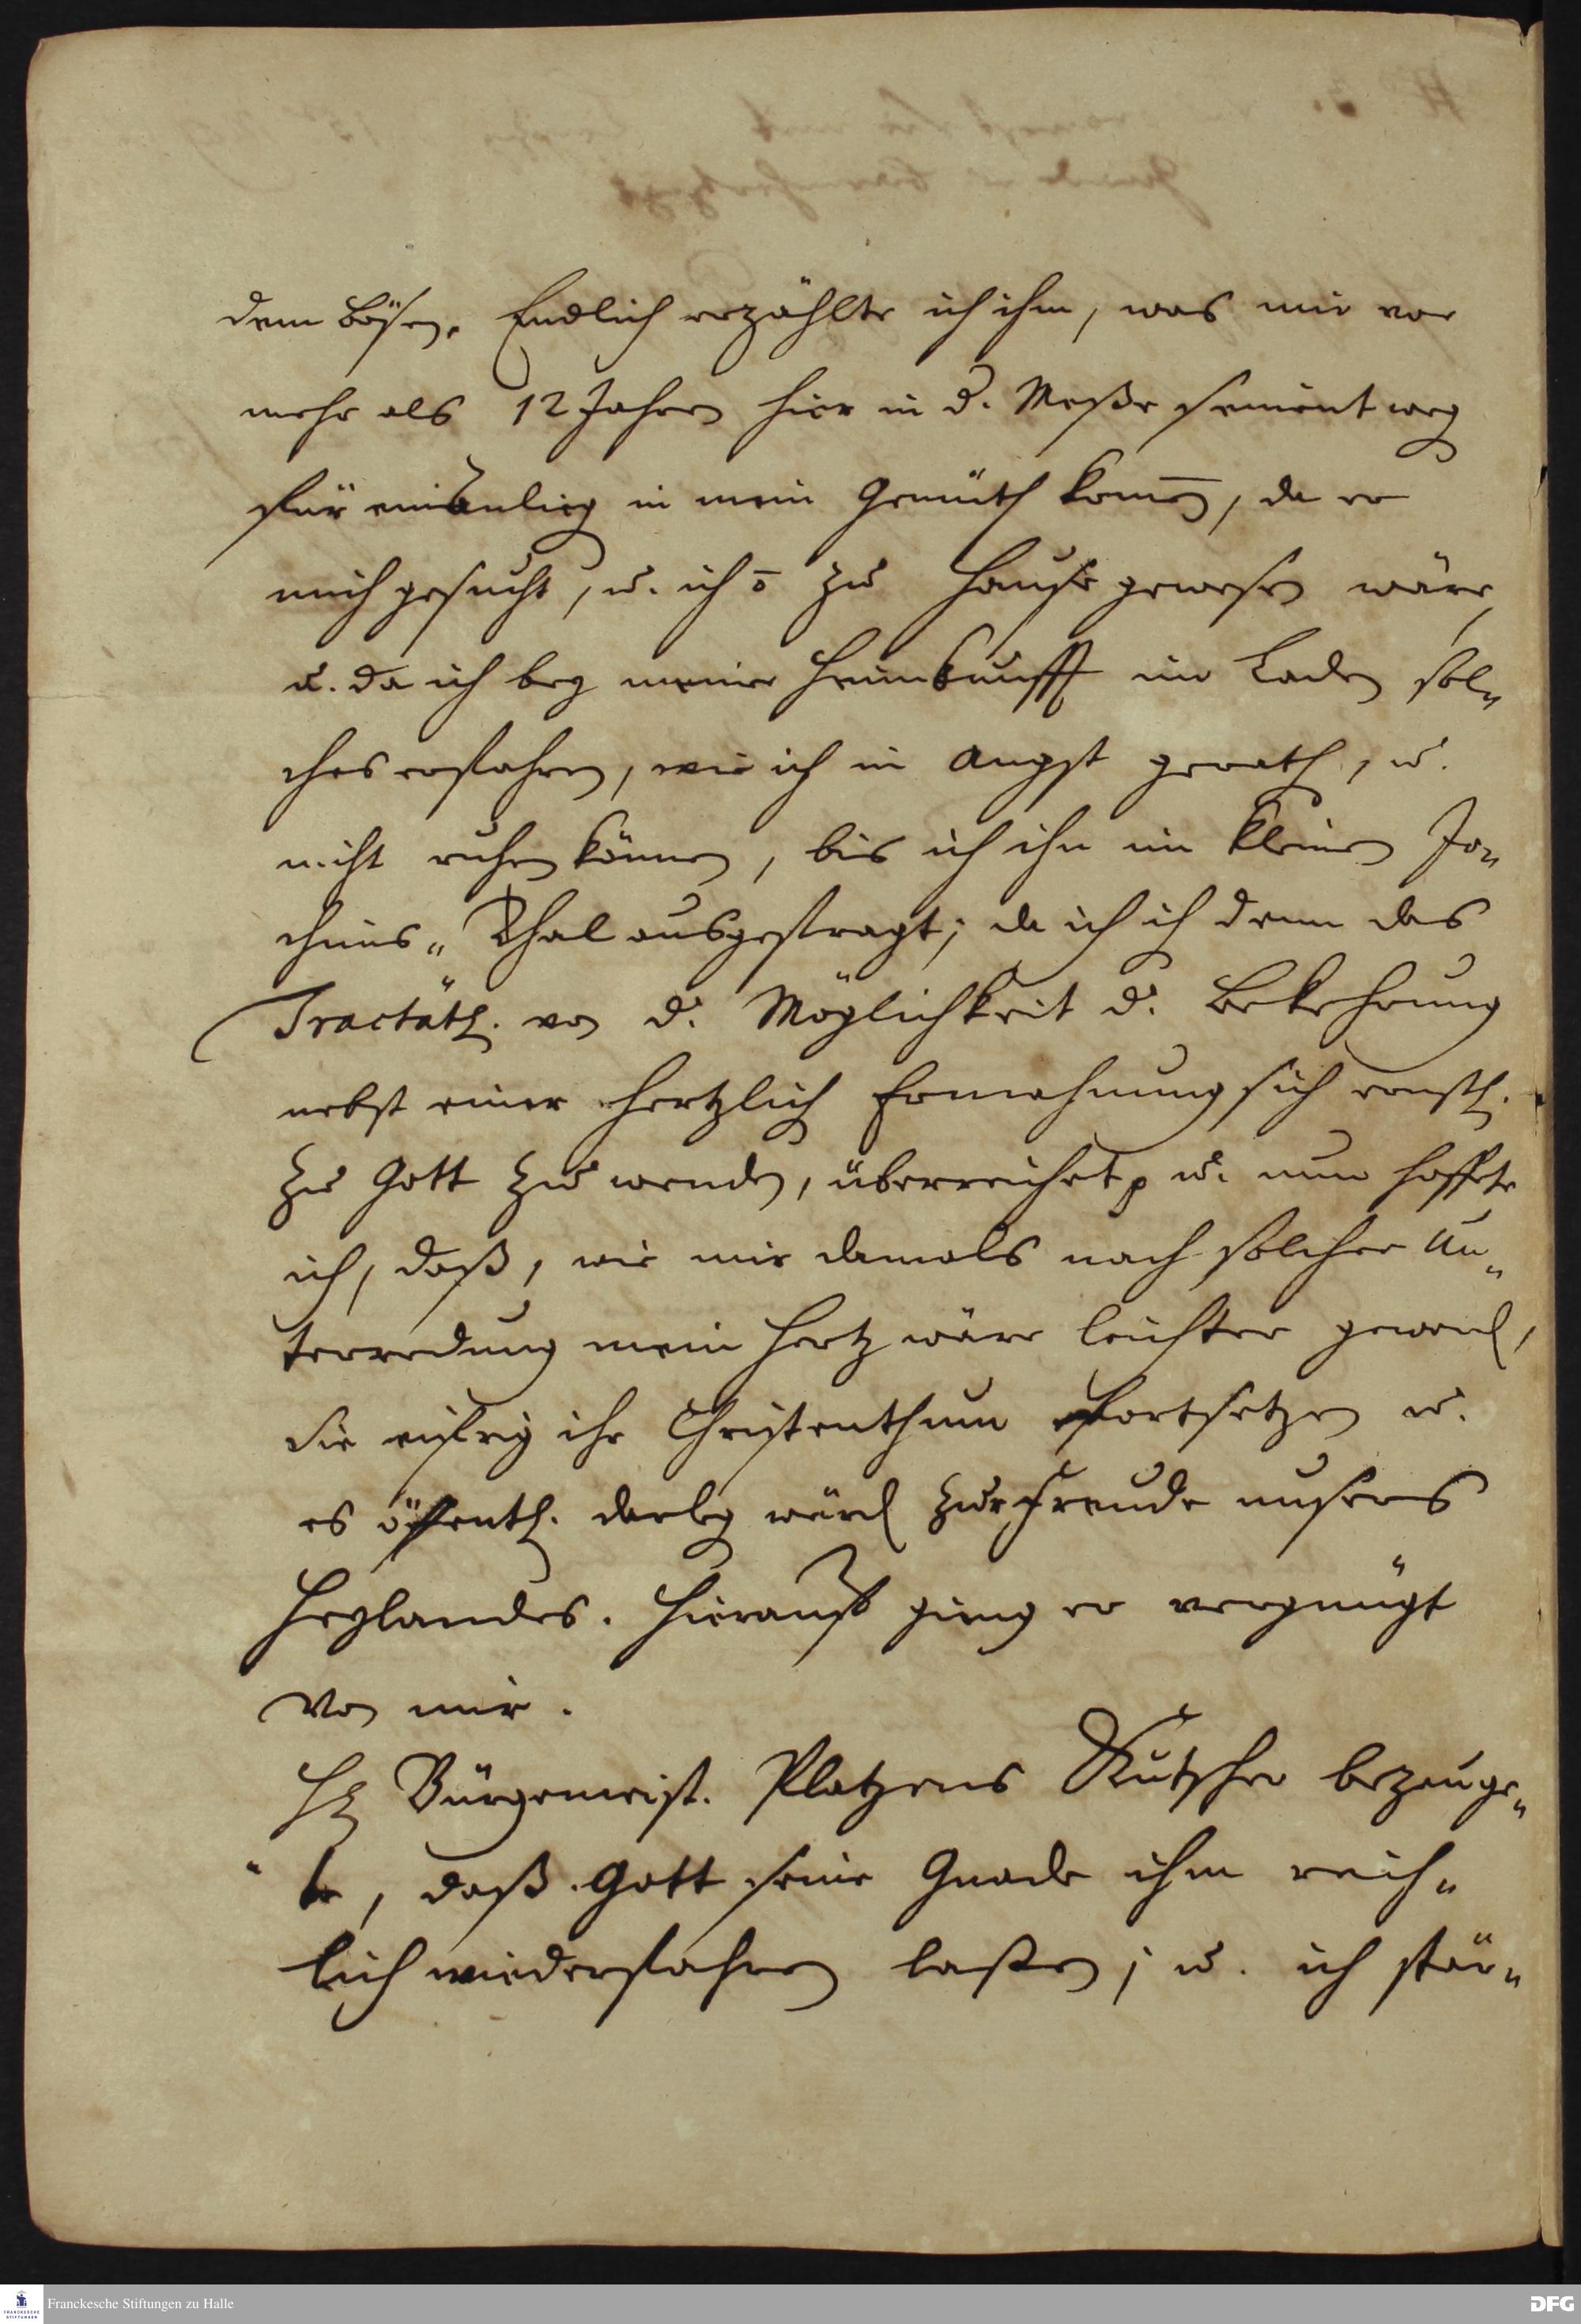 dem Bösen. Endlich erzählte ich ihm, was mir vor
mehr als 12 Jahren hier in d. Meße seinent weg
für ein Anlieg in mein Gemüth kom̅en, da er
mich gesucht, u. ich o̅ zu Hause gewesen wäre,
u. da ich bey meiner Heimkunfft im Laden sol„
ches erfahren, wie ich in Angst gerath, u.
nicht ruhen können, bis ich ihn im kleinen Jo„
chims„ Thal ausgefragt; da ich ih denn das
Tractätl. von d. Möglichkeit d. Bekehrung
nebst einer hertzlich Ermahnung sich ernstl.
zu Gott zu wenden, überreichet p u. nun hoffte
ich, daß, wie mir damals nach solcher Un„
terredung mein Hertz wäre leichter geword,
Sie eifrig ihr Christenthum fortsetzen u.
es öffentl. darleg würd zur Freude unsers
Heylandes. Hierauf gieng er vergnügt
von mir.
H Bürgermeist. Platzens Kutscher bezeuge„
te, daß Gott seine Gnade ihm reich„
lich wiederfahren laßen; u. ich stär„
Franckesche Stiftungen zu Halle
DFG